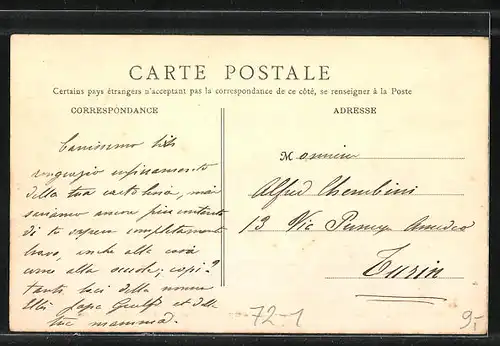 CARTE POSTALE
Certains pays étrangers n'acceptant pas la correspondance de ce côté, se renseigner à la Poste
CORRESPONDANCE
ADRESSE
Carissimo
ringrazio infinitamente
della tua cartolina, ma
saremo ancora più contenti
di te sapere completamente
bravo, anche alla casa
come alla scuola; capi?
Tanti baci della nonna
et della
tua mamma.
Monsieur
Alfred Cherubini
13 Via Amedeo
Turin
72-1
9,-